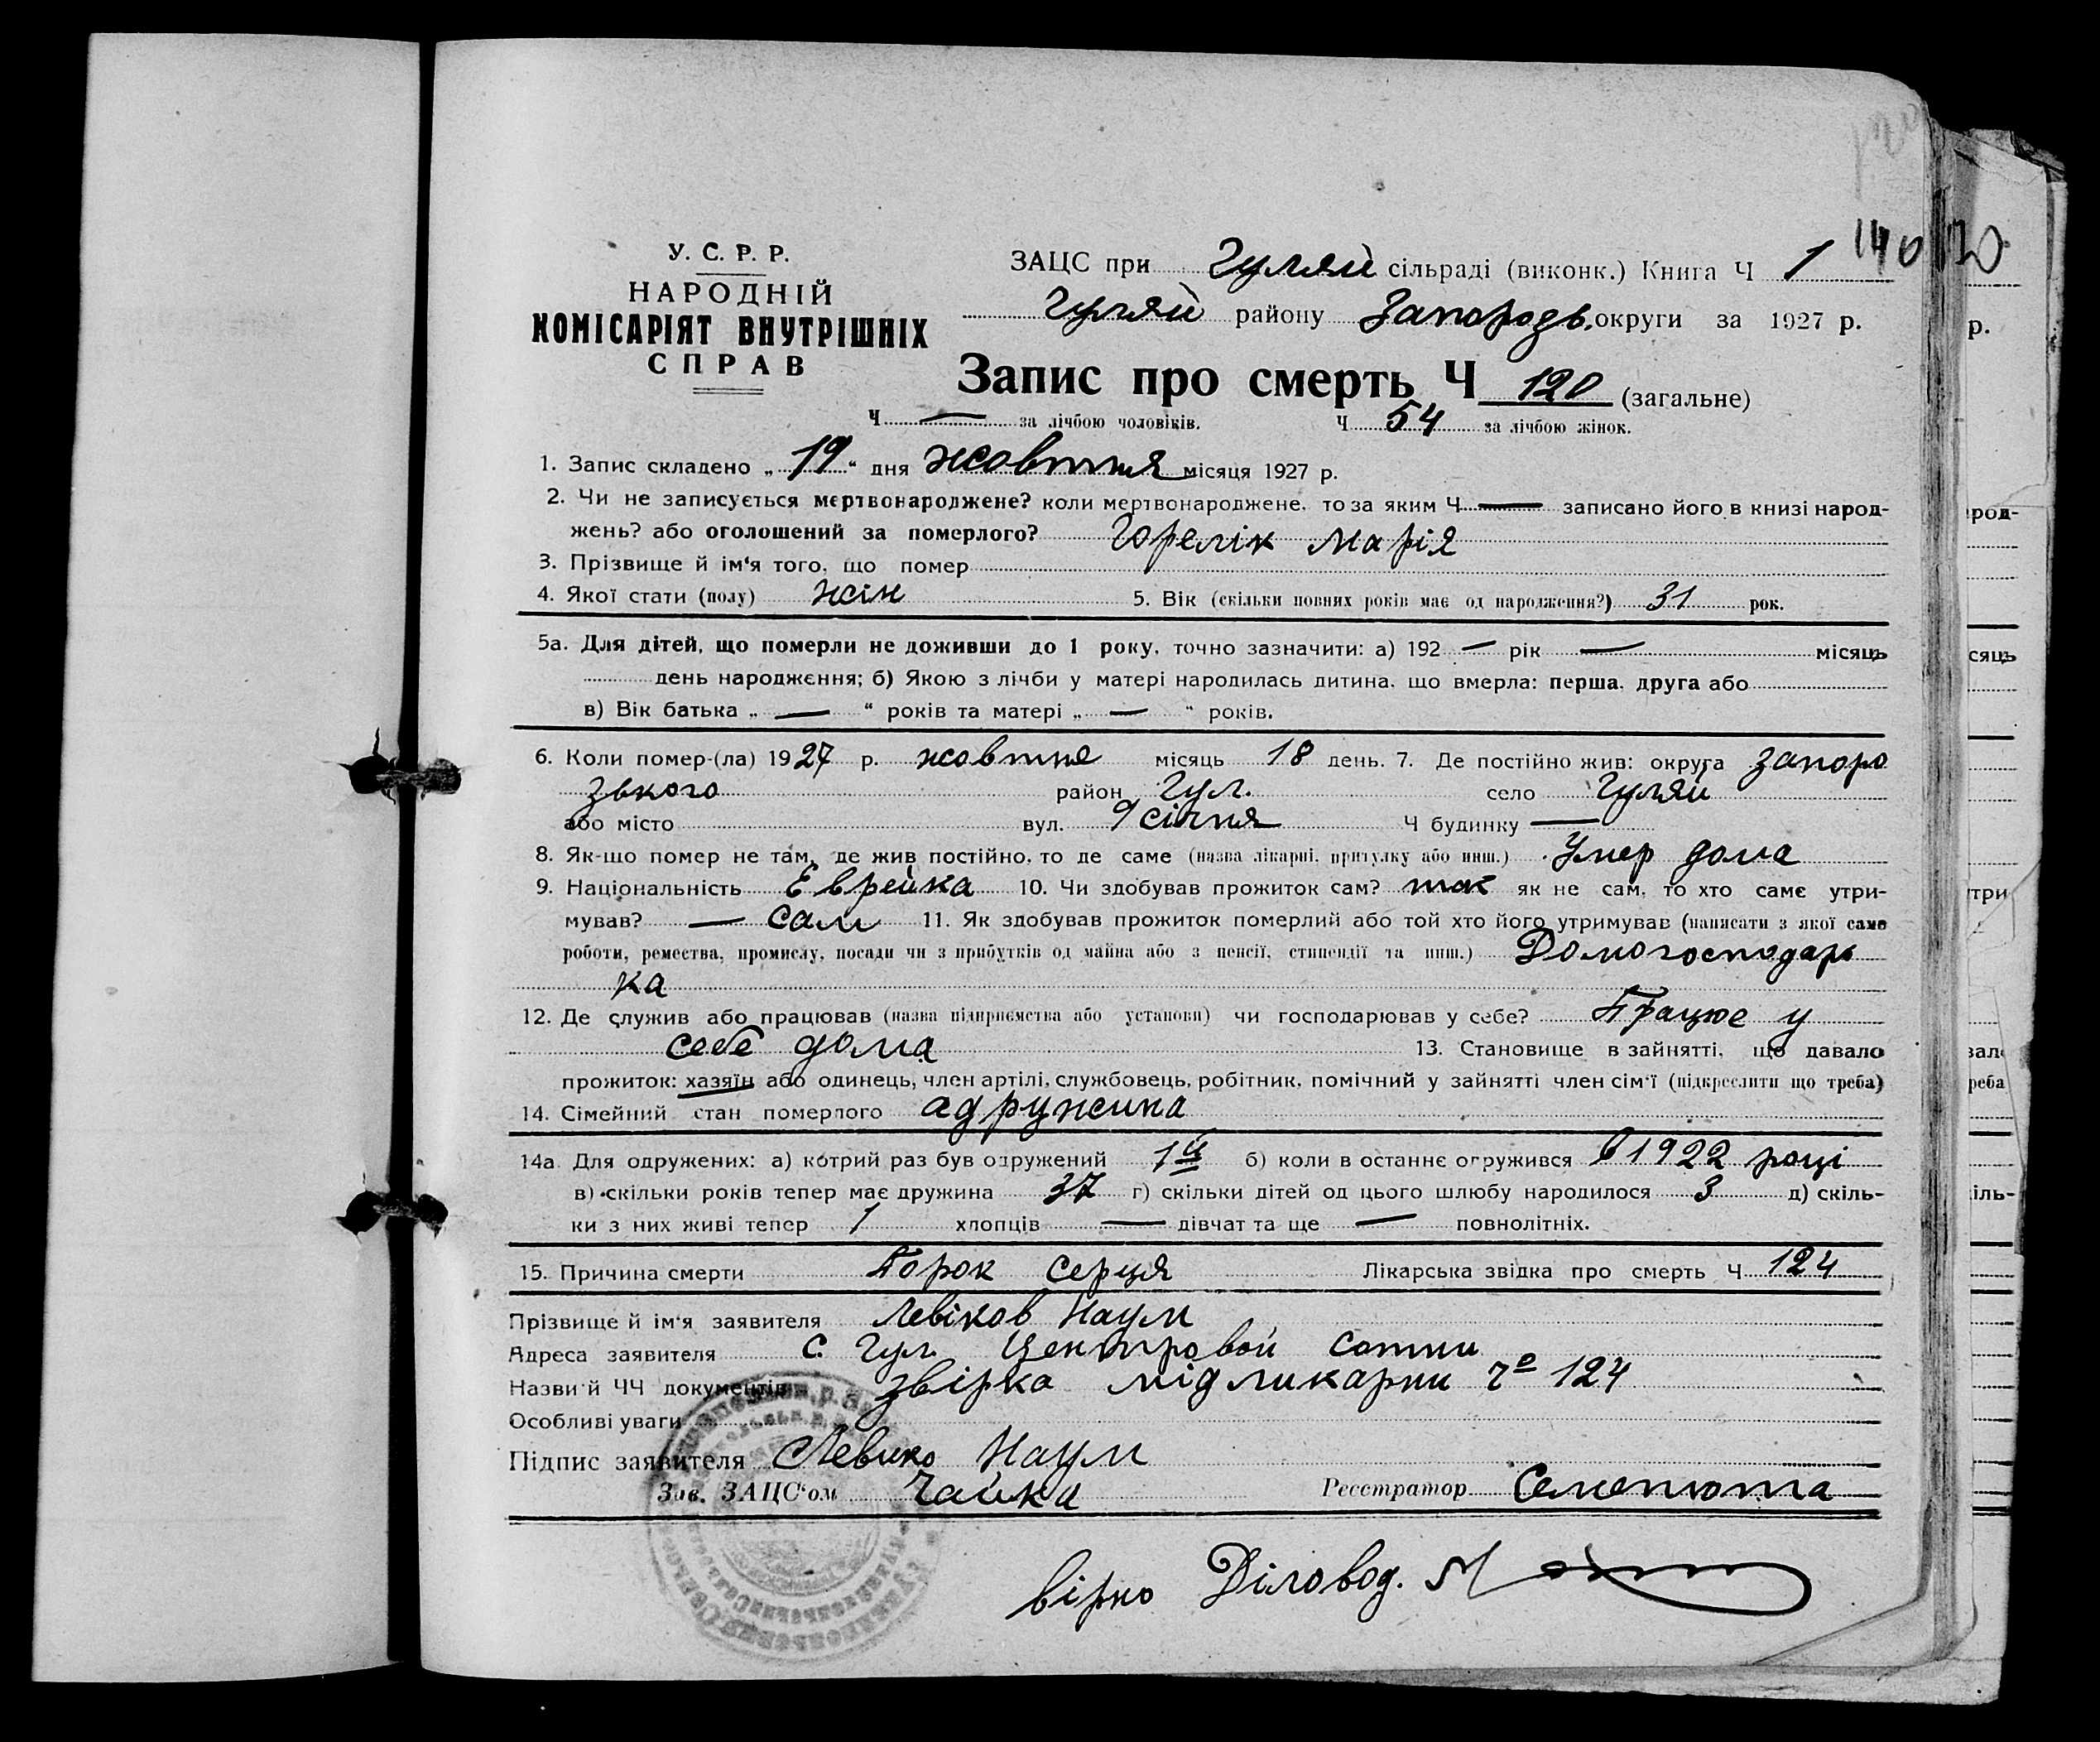 140
120
У. С. Р. Р.
НАРОДНІЙ
КОМІСАРІЯТ ВНУТРІШНІХ
СПРАВ
ЗАЦС при Гуляй сільраді (виконк.) Книга Ч 1
Гуляй району Запорозь. округи за 1927 р.
Запис про смерть Ч 120 (загальне)
Ч — за лічбою чоловіків. Ч 54 за лічбою жінок.
1. Запис складено „ 19 “ дня жовтня місяця 1927 р.
2. Чи не записується мертвонароджене? коли мертвонароджене, то за яким Ч — записано його в книзі народ-
жень? або оголошений за померлого? Горелік Марія
3. Прізвище й ім‘я того, що помер
4. Якої стати (полу) жін 5. Вік (скільки повних років має од народження?) 31 рок.
5а. Для дітей, що померли не доживши до 1 року, точно зазначити: а) 192 — рік — місяць
день народження; б) Якою з лічби у матері народилась дитина, що вмерла: перша, друга або
в) Вік батька „ — “ років та матері „ — “ років.
6. Коли помер-(ла) 1927 р. жовтня місяць 18 день. 7. Де постійно жив: округа запоро
зького район Гул. село Гуляй
або місто вул. 9 січня Ч будинку —
8. Як-що помер не там, де жив постійно, то де саме (назва лікарні, притулку або инш.) Умер дома
9. Національність Еврейка 10. Чи здобував прожиток сам? так як не сам, то хто саме утри-
мував? — сам 11. Як здобував прожиток померлий або той хто його утримував (написати з якої саме
роботи, ремества, промислу, посади чи з прибутків од майна або з пенсії, стипендії та инш.) Домогосподарь
ка
12. Де служив або працював (назва підприємства або установи) чи господарював у себе? Працює у
себе дома 13. Становище в зайнятті, що давало
прожиток: хазяїн або одинець, член артілі, службовець, робітник, помічний у зайнятті член сім‘ї (підкреслити що треба)
14. Сімейний стан померлого адружина
14а. Для одружених: а) котрий раз був одружений 1й б) коли в останнє огружився в 1922 році
в) скільки років тепер має дружина 37 г) скільки дітей од цього шлюбу народилося 3 д) скіль-
ки з них живі тепер 1 хлопців — дівчат та ще — повнолітніх.
15. Причина смерти Порок серця Лікарська звідка про смерть Ч 124
Прізвище й ім‘я заявителя Левіков Наум
Адреса заявителя с. Гул. Центровой сотни
Назви й ЧЧ документів звірка лікарни 124
Особливі уваги
Підпис заявителя Левико Наум
Зав. ЗАЦС‘ом Чайка Реєстратор Семенюта
вірно Діловод.